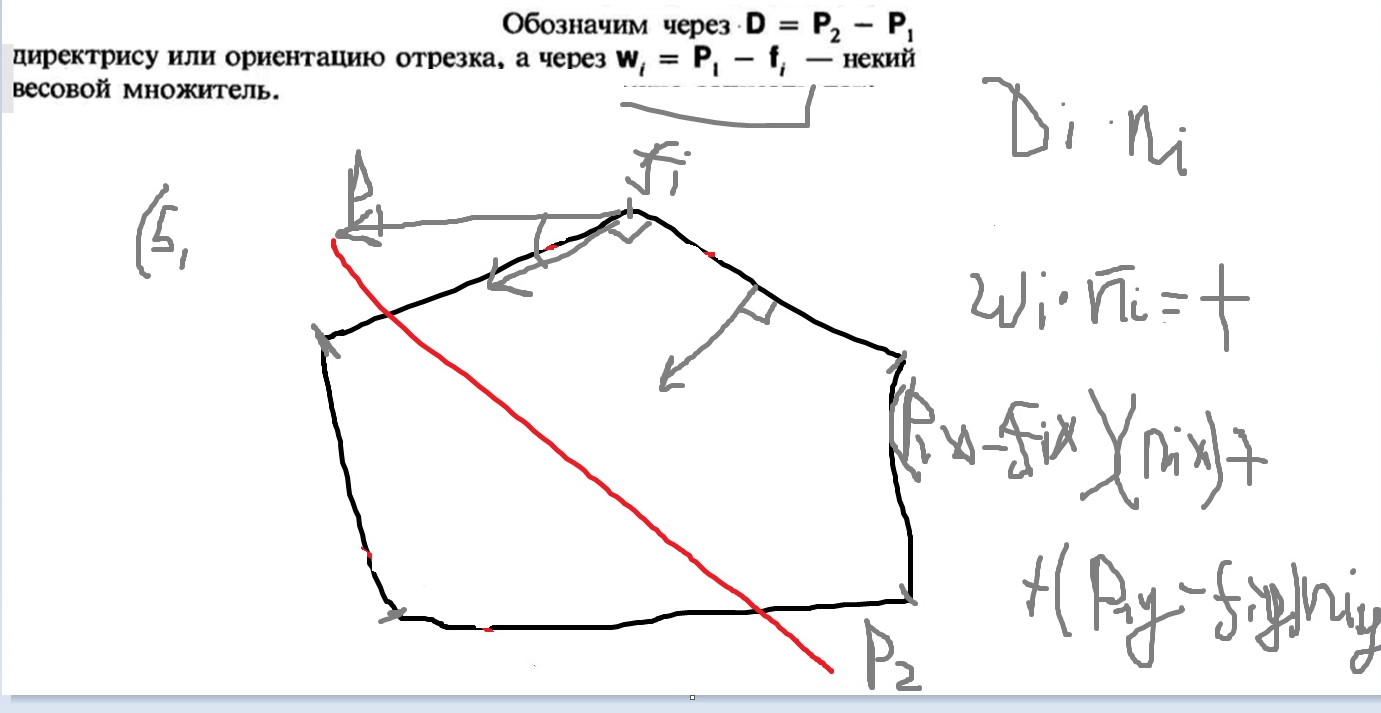 Обозначим через D = P₂ − P₁
директрису или ориентацию отрезка, а через wᵢ = P₁ − fᵢ — некий
весовой множитель.
Di · ni
P1
fi
(5,
wi · n̄i = +
(P1x - fix)(nix) +
+(P1y - fiy)niy
P2